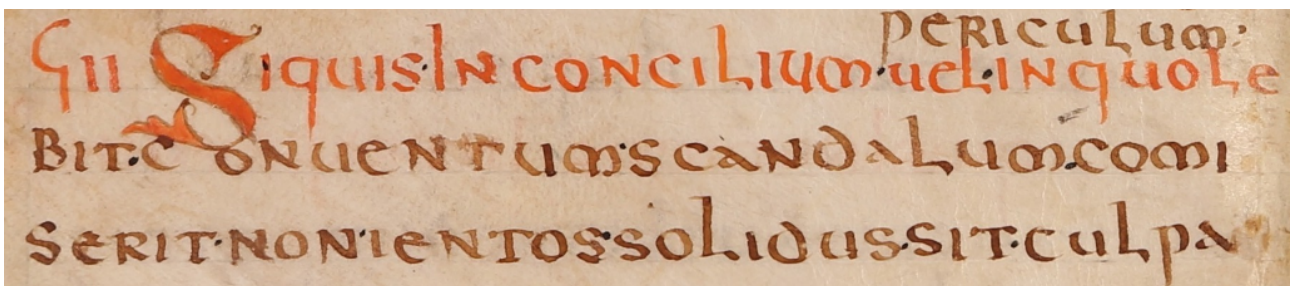 periculum:
Ϛii Siquis·inconcilium·uel·inquole
bit·conuentum·scandalum·comi
serit·non·ientos·solidus·sit·culpa